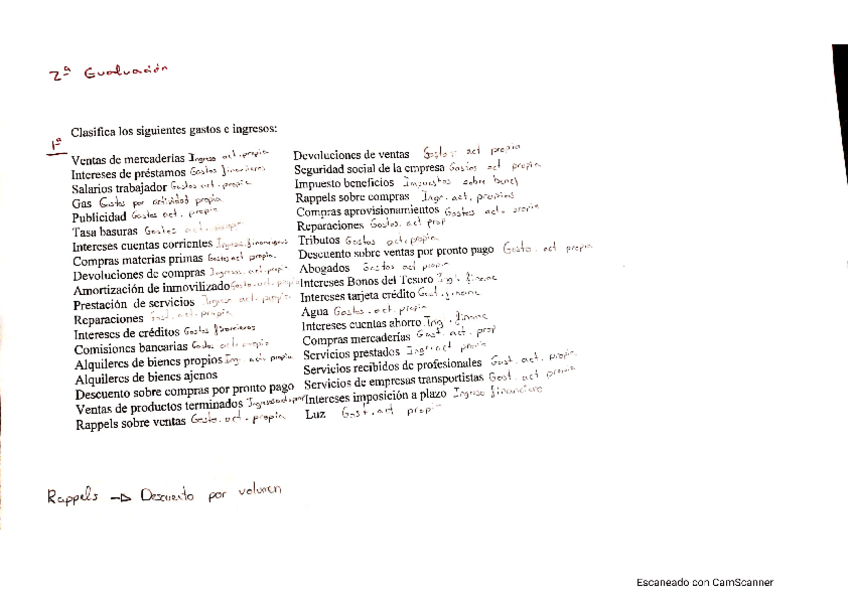 2ª Evaluación
Clasifica los siguientes gastos e ingresos:
1ª
Ventas de mercaderías Ingreso act. propia
Intereses de préstamos Gastos financieros
Salarios trabajador Gastos act. propia
Gas Gastos por actividad propia
Publicidad Gastos act. propia
Tasa basuras Gastos act. propia
Intereses cuentas corrientes Ingreso financieros
Compras materias primas Gastos act propia.
Devoluciones de compras Ingresos. act. propia
Amortización de inmovilizado Gasto. act. propia
Prestación de servicios Ingreso act. propia
Reparaciones Gast. act. propia
Intereses de créditos Gastos financieros
Comisiones bancarias Gastos act propia
Alquileres de bienes propios Ing. act. propia
Alquileres de bienes ajenos
Descuento sobre compras por pronto pago
Ventas de productos terminados Ingreso act. por
Rappels sobre ventas Gasto. act. propia
Devoluciones de ventas Gastos act propia
Seguridad social de la empresa Gastos act propia
Impuesto beneficios Impuestos sobre benef
Rappels sobre compras Ingr. act. propias
Compras aprovisionamientos Gastos act. propia
Reparaciones Gastos. act prop
Tributos Gastos act. propia
Descuento sobre ventas por pronto pago Gasto. act propia
Abogados Gastos act propia
Intereses Bonos del Tesoro Ing. financ
Intereses tarjeta crédito Gast. financ
Agua Gastos. act. propia
Intereses cuentas ahorro Ing. financ
Compras mercaderías Gast. act. prop
Servicios prestados Ingr. act propia
Servicios recibidos de profesionales Gast. act. propia.
Servicios de empresas transportistas Gast. act propia
Intereses imposición a plazo Ingreso financiero
Luz Gast. act propia
Rappels → Descuento por volumen
Escaneado con CamScanner